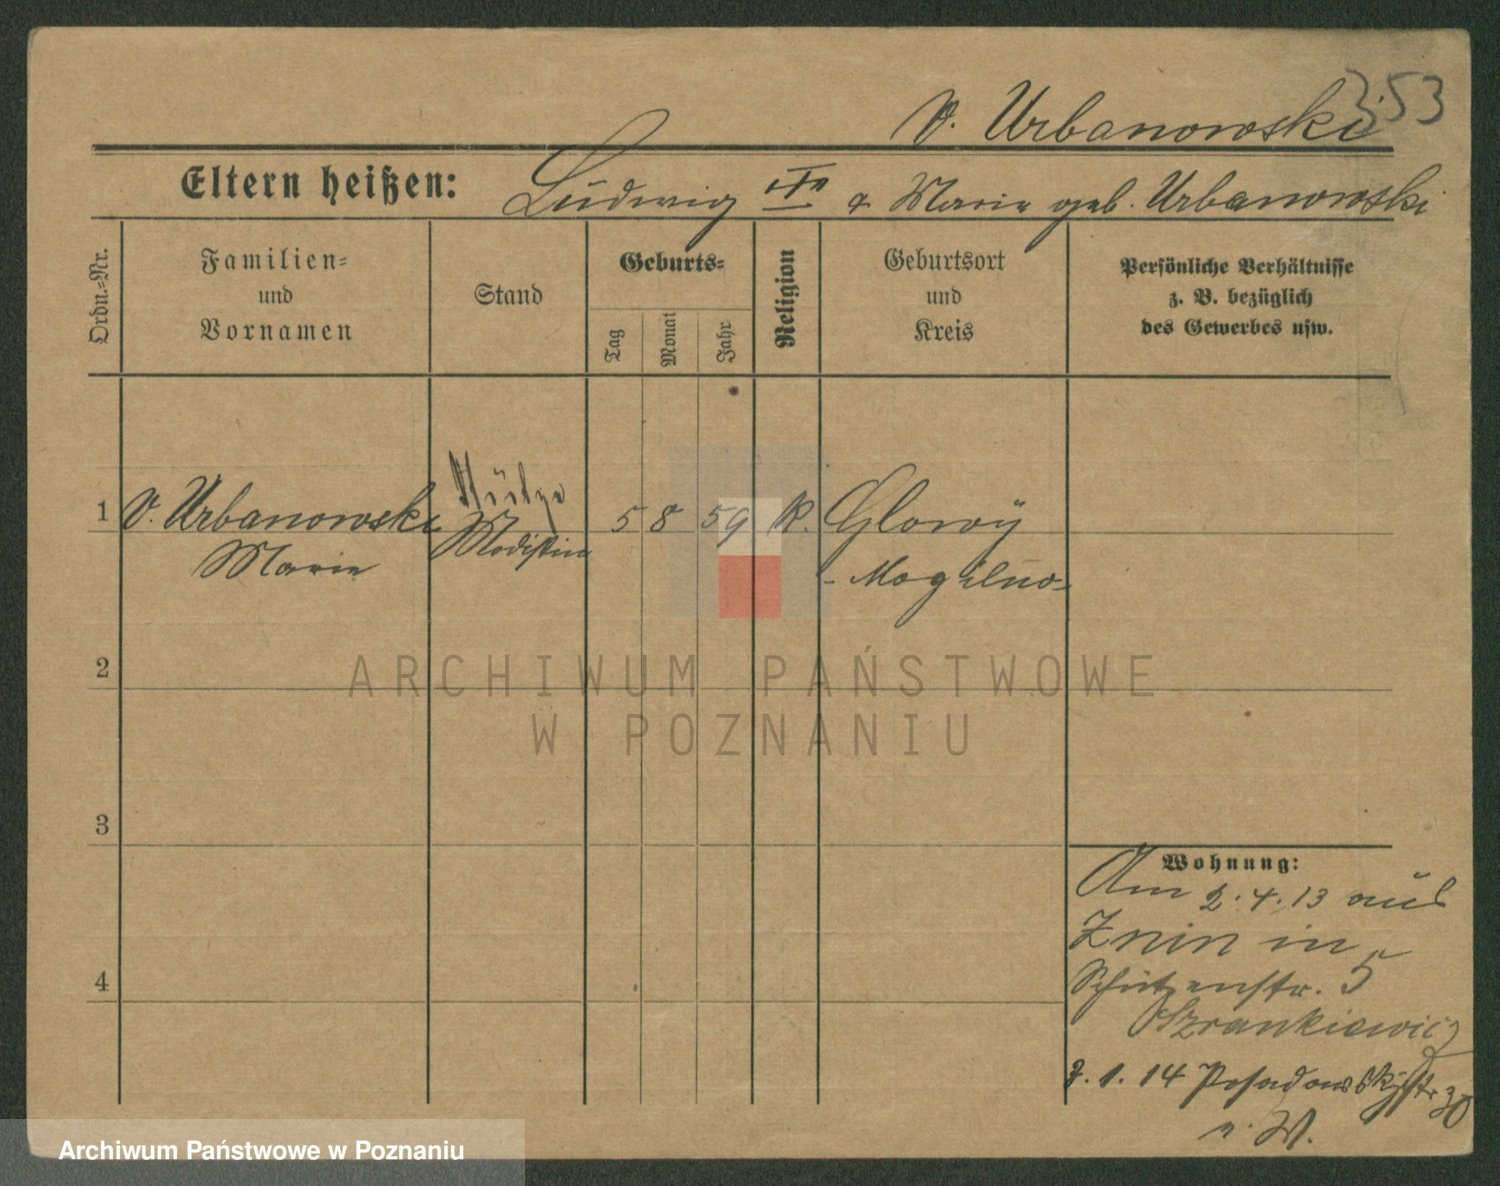 353
v. Urbanowski
Eltern heißen: Ludwig & Marie geb. Urbanowski
Ordn.-Nr.
Familien-
und
Vornamen
Stand
Geburts-
Tag
Monat
Jahr
Religion
Geburtsort
und
Kreis
Persönliche Verhältnisse
z. B. bezüglich
des Gewerbes usw.
1 v. Urbanowski Modistin 5 8 59 K.
Marie
- Mogilno -
2
ARCHIWUM PAŃSTWOWE
W POZNANIU
3
4
Wohnung:
Am 2.4.13 aus
Znin in
Schützenstr. 5
Szrankiewicz
7.1.14 Posadowskystr 30
Archiwum Państwowe w Poznaniu